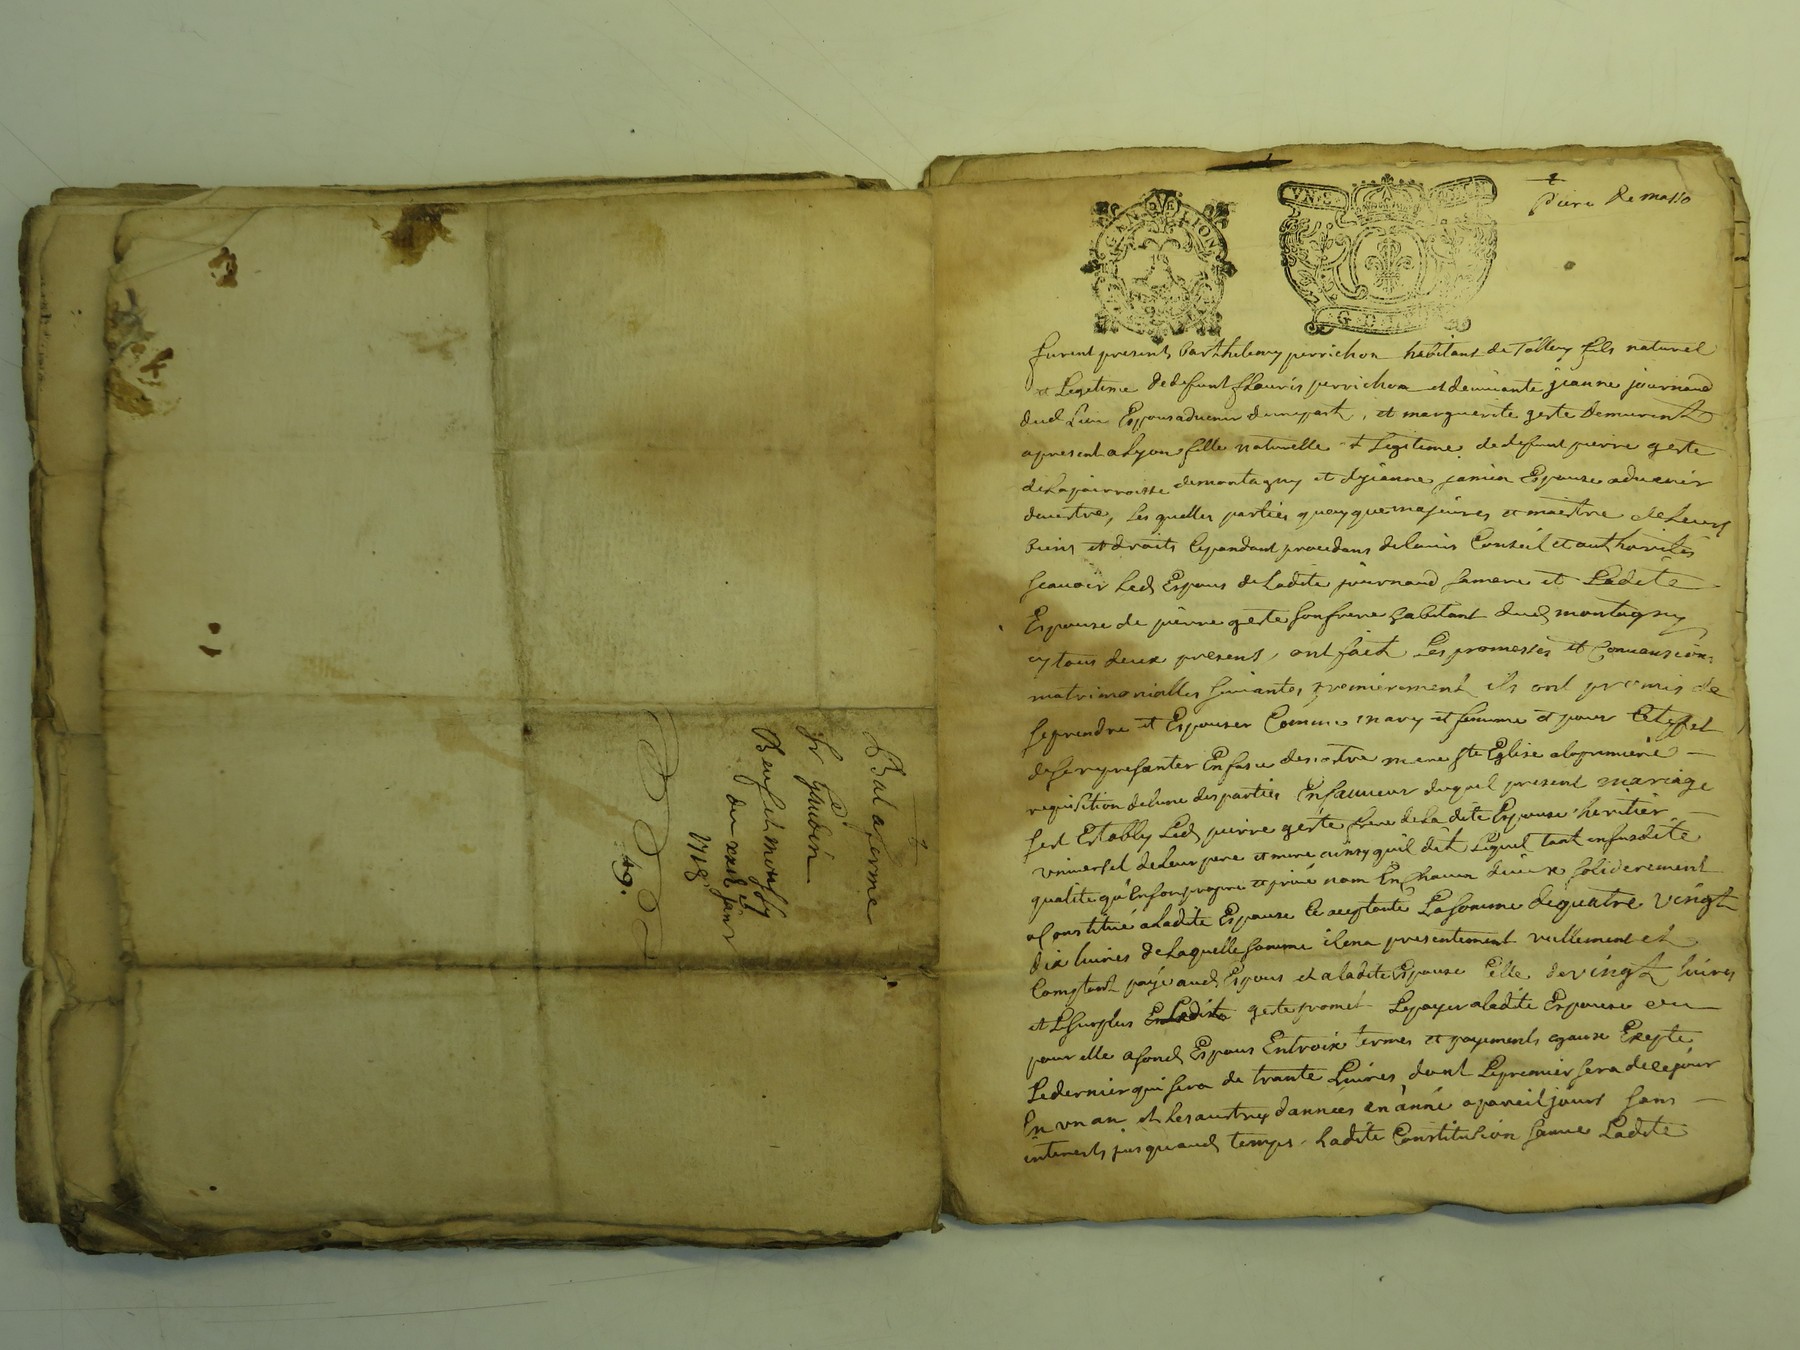 Bal aferme
Sr Gaudon
Benefit
du xxii janr
1718
49.
GEN LYON
VN S
G D LYON
Piere Remasso
furent presents Barthelemy perrichon habitant de Tollery fils naturel
et Legitime de defunt fleuris perrichon et deviuante jeanne journaud
dud Lieu Espous aduenir dunepart, et marguerite geste demurant
apresent a Lyon fille naturelle et Legitime de defunt pierre geste
de la parroisse de montagny et de jeanne jamien Espouse aduenir
dautre, Les quelles parties quoyque majeures et maestre de Leurs
biens et droits Cepandant procedans de lauis Conseil et authorités
scauoir Led Espous de Ladite journaud samere et Ladite
Espouse de pierre geste son frere habitant dud montagny
cy tous deux present, ont fait Les promesses et Conuensions
matrimonialles suiuantes, premierement ils ont promis de
se prendre et Espouser Comme mary et femme et pour Cet effet
de se representer En face de notre mere ste Eglise a la premiere
requisition de lune des parties En faueur duquel present mariage
sest Estably Led pierre geste frere de la dite Espouse heritier
vniuersel de Leur pere et mere ainsy quil dit Lequel tant en sus dite
qualite qu'En son propre et priué nom En Chacun dieux soliderement
a Constitué a Ladite Espouse Ce aceptante La somme de quatre vingt
dix liures de Laquelle somme il en a presentement reellement et
Comptant payé aud Espous et a ladite Espouse Celle de vingt liures
et Le surplus Ledit geste promet Le payer a Ladite Espouse ou
pour elle a son d Espous En troix termes et payements egaux Exepte
Le dernier qui sera de trante Liures, dont Le premier sera de ce jour
En vn an et Les autres dannées en anné a pareil jours sans
interests jusqu aud temps, Ladite Constitution Ladite